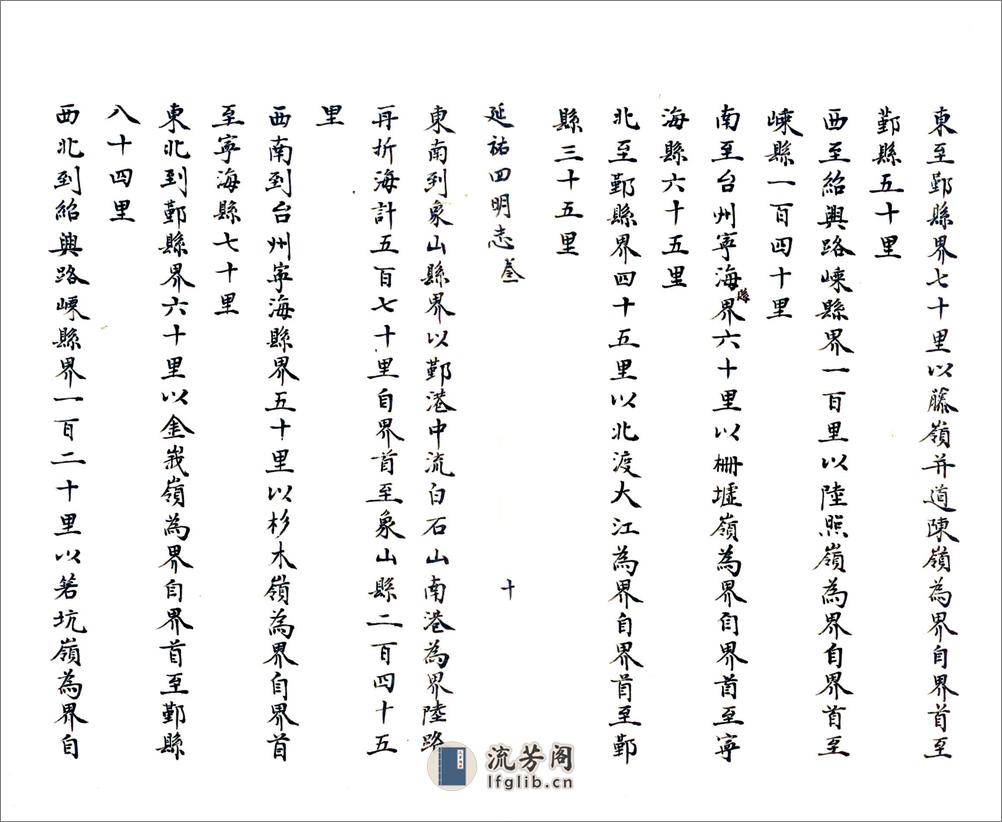 東至鄞縣界七十里以藤嶺并道陳嶺為界自界首至
鄞縣五十里
西至紹興路嵊縣界一百里以陸照嶺為界自界首至
嵊縣一百四十里
南至台州寧海縣界六十里以柵墟嶺為界自界首至寧
海縣六十五里
北至鄞縣界四十五里以北渡大江為界自界首至鄞
縣三十五里
延祐四明志 叁 十
東南到象山縣界以鄞港中流白石山南港為界陸路
再折海計五百七十里自界首至象山縣二百四十五
里
西南到台州寧海縣界五十里以杉木嶺為界自界首
至寧海縣七十里
東北到鄞縣界六十里以金峩嶺為界自界首至鄞縣
八十四里
西北到紹興路嵊縣界一百二十里以箬坑嶺為界自
流芳阁
lfglib.cn